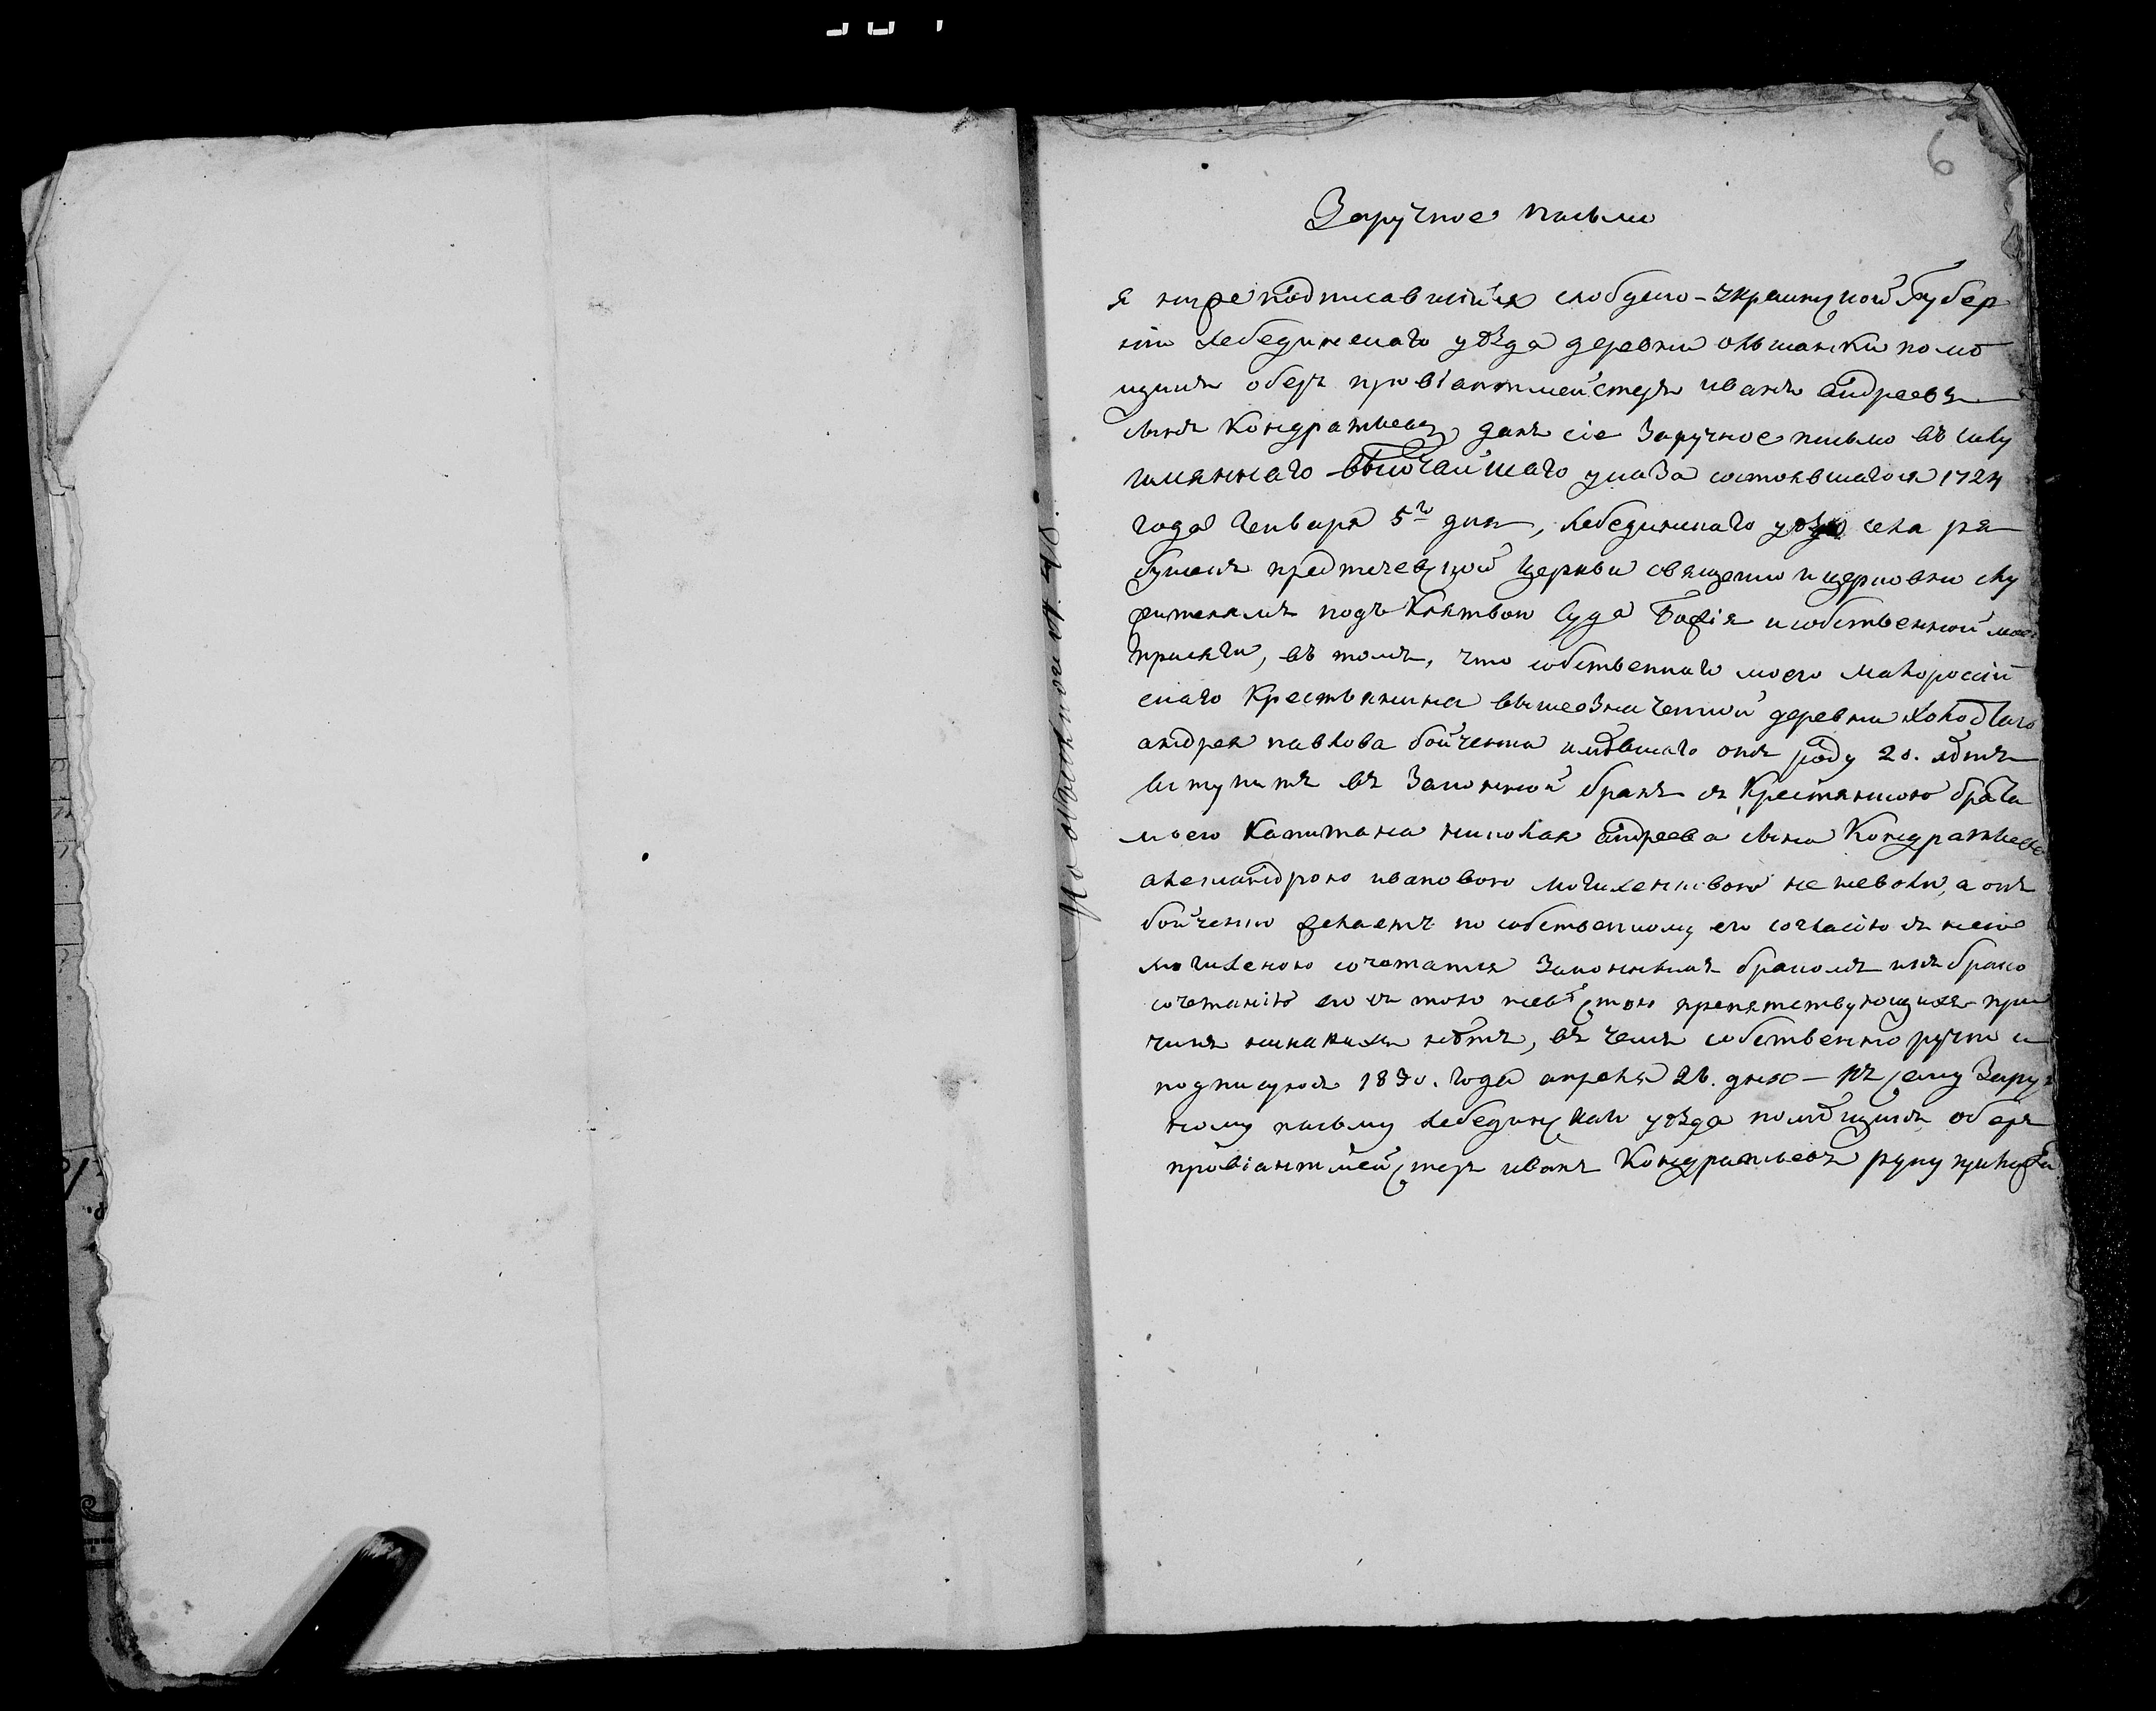 6
Заручное письмо
я нижеподписавшійся слободско-украинской губер
ніи лебединскаго уѣзда деревни ольшанки помѣ
щикъ оберъ провіантмейстеръ иванъ андреевъ
сынъ Кондратьевъ, далъ сіе Заручное письмо въ силу
имяннаго высочайшаго указа состоявшагося 1724
года Генваря 5го дня, лебединскаго уѣзда села ря
бушекъ предтечевской Церкви священно и церковно слу
жителямъ подъ Клятвою Суда Божія и собственной моей
присяги, въ томъ, что собственнаго моего малороссій
скаго Крестьянина вышеозначенной деревни
андрея павлова бойченка имѣющаго отъ роду 20. лѣтъ
вступить въ Законной бракъ съ Крестянкою брата
моего Капитана николая андреева сына Кондратьева
александрою ивановою могиленковою не неволю, а онъ
бойченко желаетъ по собственному его согласію съ нею
могиленкою сочетатся Законнымъ бракомъ и къ брако
сочетанію его съ тою невѣстою препятствующихъ при
чинъ никакихъ нѣтъ, въ чемъ собственно ручно и
подписуюся 1830. года апреля 26. дня – къ сему Заруч
ному письму лебединскаго уѣзда помѣщикъ оберъ
провіантмейстеръ иванъ Кондратьевъ руку приложи